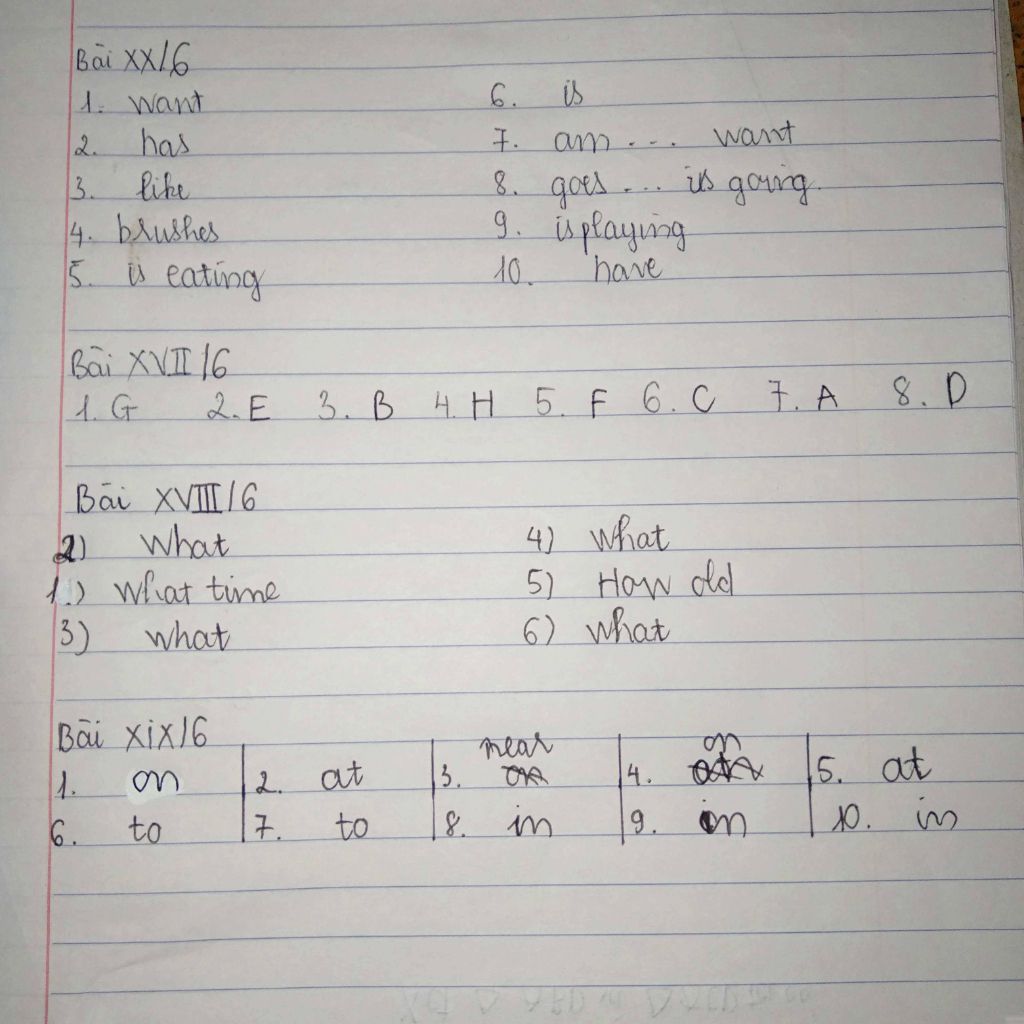 Bài XX/6
1. want 6. is
2. has 7. am ... want
3. like 8. goes ... is going.
4. brushes 9. is playing
5. is eating 10. have
Bài XVII/6
1. G 2. E 3. B 4. H 5. F 6. C 7. A 8. D
Bài XVIII/6
2) What 4) What
1.) What time 5) How old
3) what 6) What
Bài XiX/6
near on
1. on 2. at 3. 4. 5. at
6. to 7. to 8. in 9. in 10. in